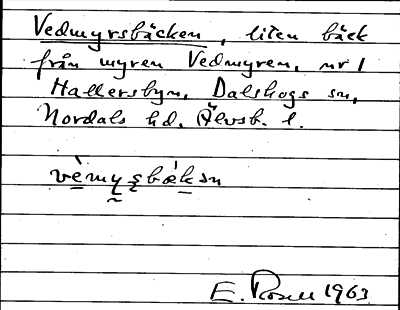 Vedmyrsbäcken, liten bäck
från myren Vedmyren, nr 1
Hallersbyn, Dalskogs sn,
Nordals hd. Älvsb. l.
vèmyṣbǽksn
E. Rosell 1963